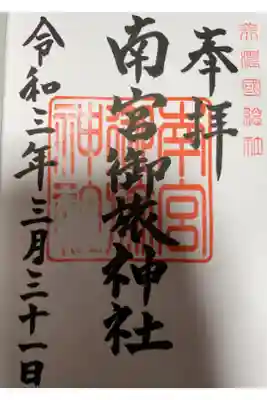 美濃國総社
奉拝
南宮御旅神社
令和三年三月三十一日
南宮
神社